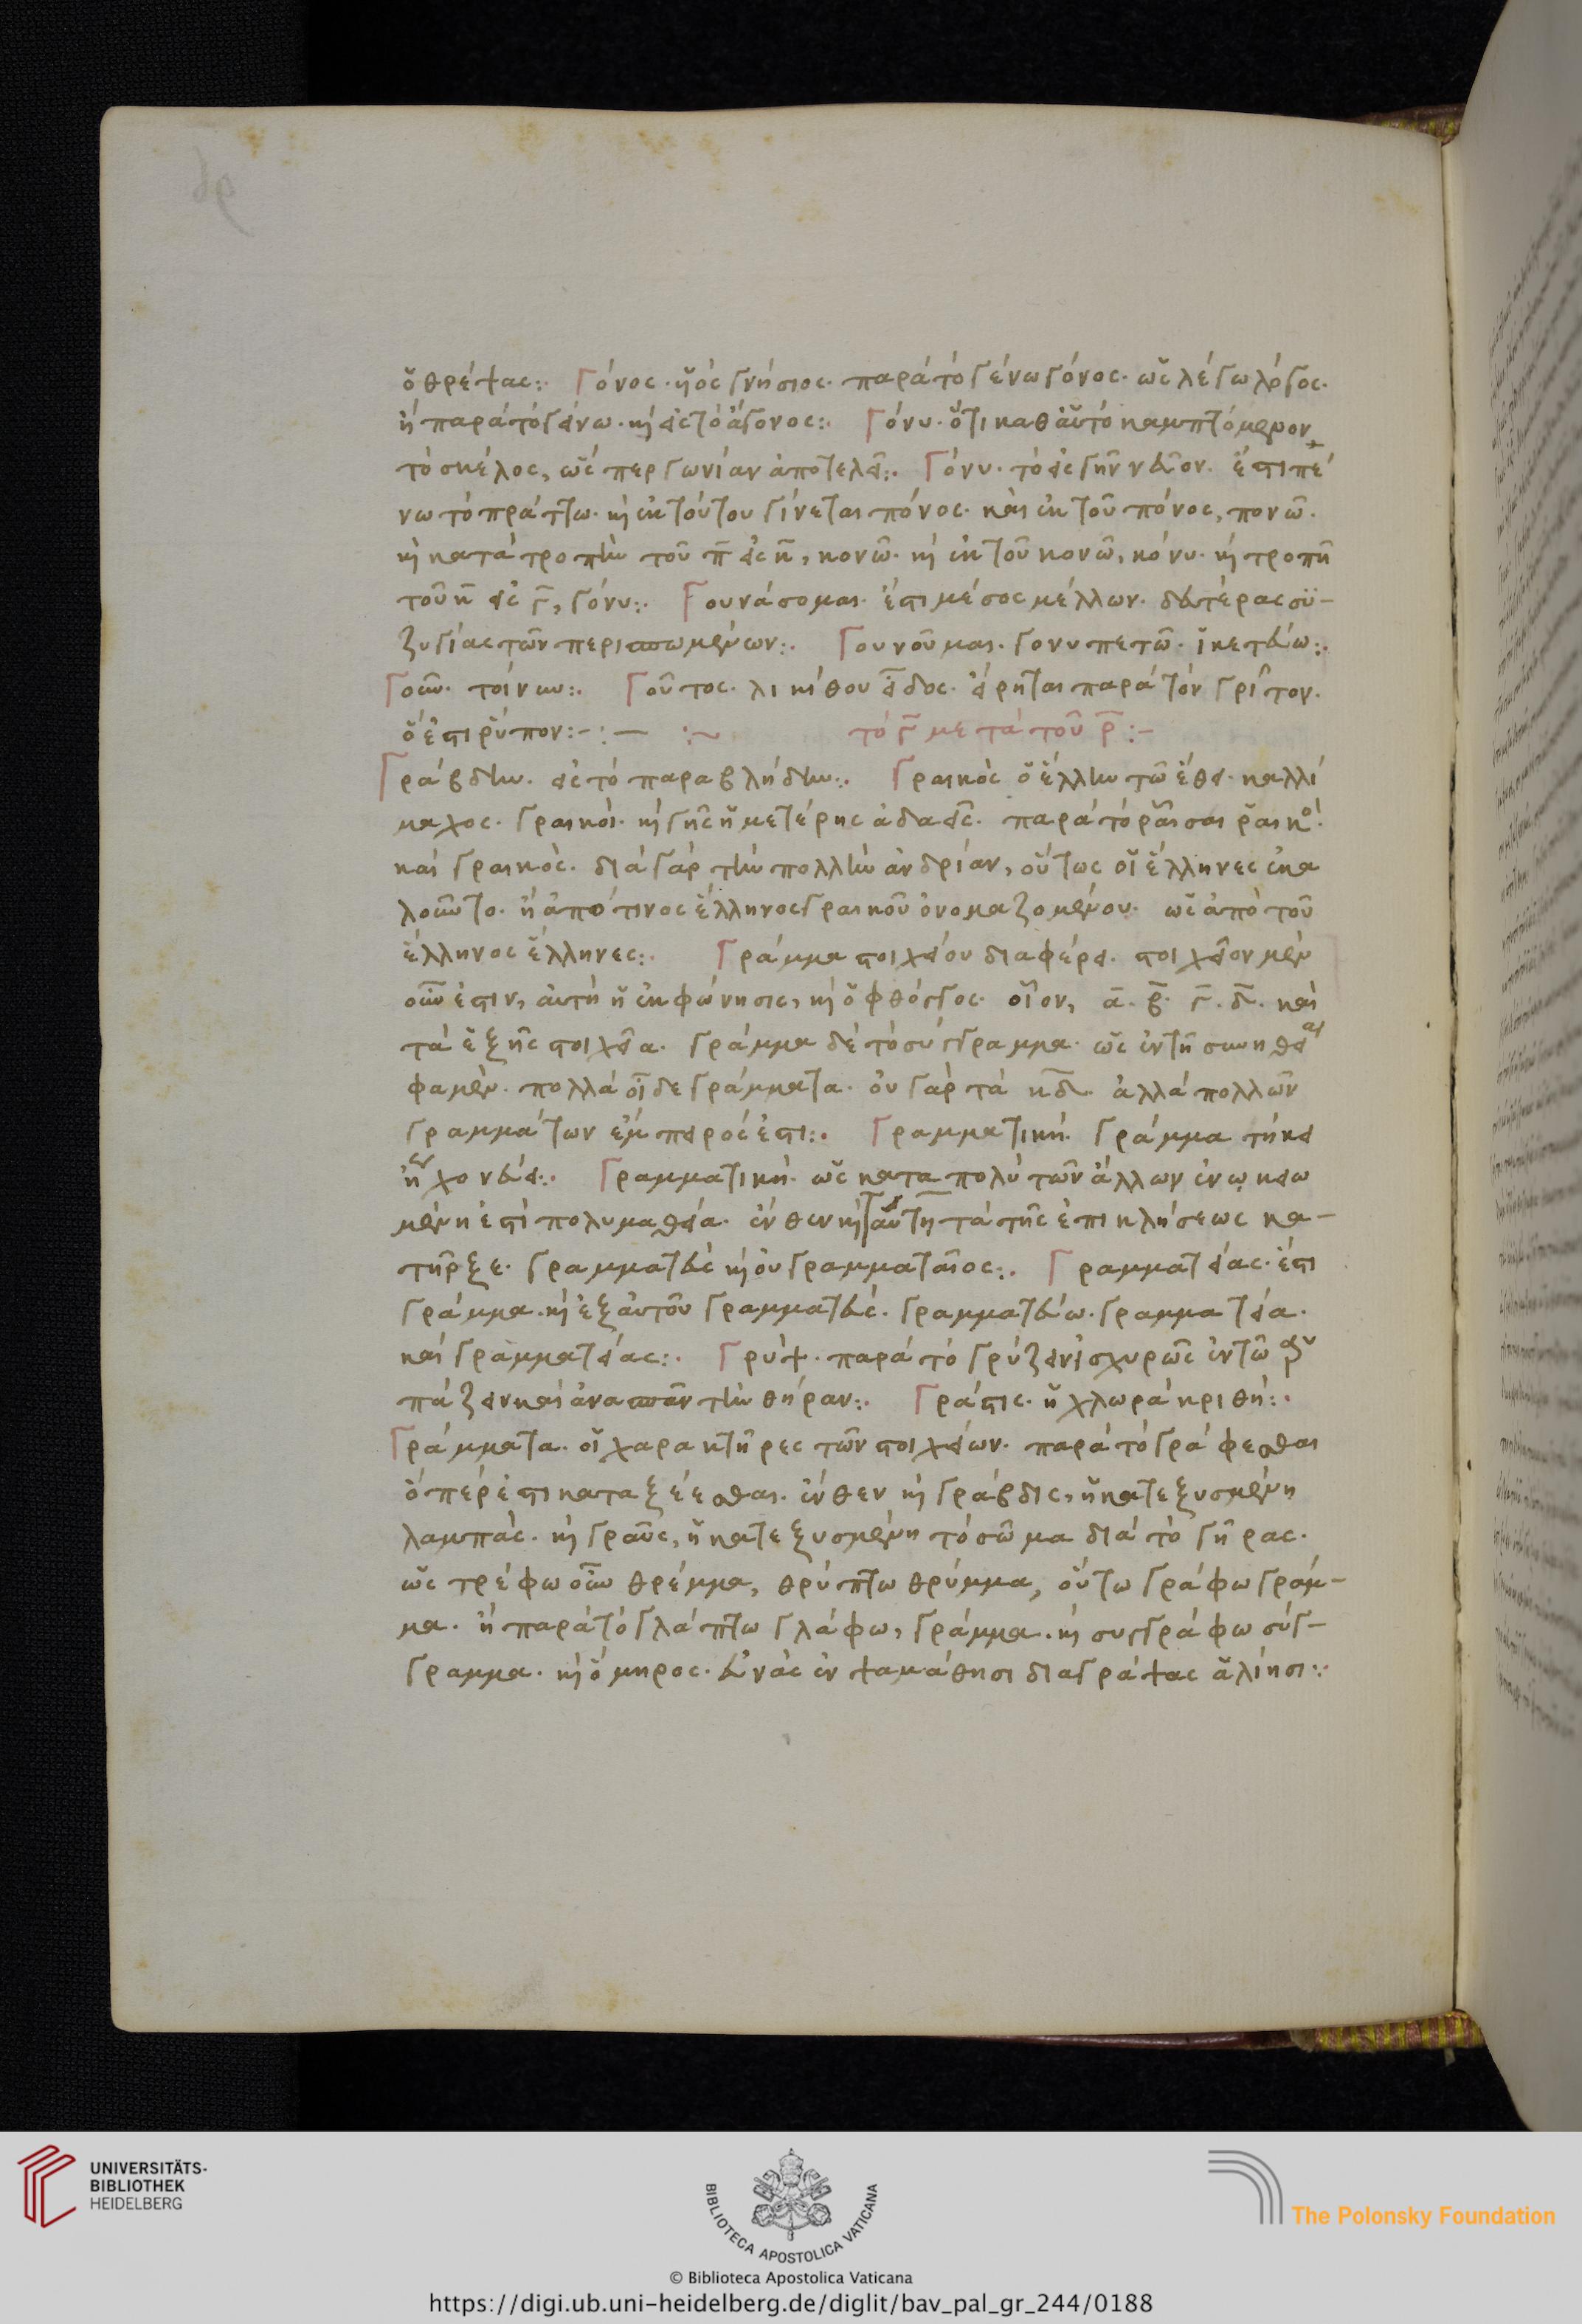 ὁ θρέψας:· Γόνος· υἱὸς γνήσιος· παρὰ τὸ γένω γόνος· ὡς λέγω λόγος·
ἢ παρὰ τὸ γείνω· καὶ εἰς τὸ ἄγονος:· Γόνυ· ὅτι καθ' αὑτὸ καμπτόμενον
τὸ σκέλος, ὥσπερ γωνίαν ἀποτελεῖ:· Γόνυ· τὸ εἰς γῆν νεῦον· ἔστι πέ
νω τὸ πράττω· καὶ ἐκ τούτου γίνεται πόνος· καὶ ἐκ τοῦ πόνος, πονῶ·
καὶ κατὰ τροπὴν τοῦ π̅ εἰς κ̅, κονῶ· καὶ ἐκ τοῦ κονῶ, κόνυ· καὶ τροπῇ
τοῦ κ̅ εἰς γ̅, γόνυ:· Γουνάσομαι· ἔστι μέσος μέλλων· δευτέρας συ-
ζυγίας τῶν περισπωμένων:· Γουνοῦμαι· γονυπετῶ· ἱκετεύω:·
Γοῦν· τοίνυν:· Γοῦτος· λικήθου εἶδος· εἴρηται παρὰ τὸν γρῖτον·
ὅ ἐστι ῥύπον:-:— :~ τὸ γ̅ μετὰ τοῦ ρ̅:-
Γράβδην· εἰς τὸ παραβλήδην:· Γραικὸς ὁ ἕλλην τῶ ἔθει· καλλί
μαχος· γραικοὶ· καὶ γῆς ἡμετέρης ἀδαεῖς· παρὰ τὸ ῥᾶισαι ῥαικὸ·
καὶ γραικὸς· διὰ γὰρ τὴν πολλὴν ἀνδρίαν, οὕτως οἱ ἕλληνες ἐκα
λοῦντο· ἢ ἀπό τινος ἕλληνος γραικοῦ ὀνομαζομένου· ὡς ἀπὸ τοῦ
ἕλληνος ἕλληνες:· Γράμμα στοιχείου διαφέρει· στοιχεῖον μὲν
οὖν ἐστιν, αὐτὴ ἡ ἐκφώνησις, καὶ ὁ φθόγγος· οἷον, α̅· β̅· γ̅· δ̅· καὶ
τὰ ἑξῆς στοιχεῖα· γράμμα δὲ τὸ σύγγραμμα· ὡς ἐν τῇ συνηθείαι
φαμὲν· πολλὰ οἶδε γράμματα· οὐ γὰρ τὰ κ̅δ̅· ἀλλὰ πολλῶν
γραμμάτων ἔμπειρός ἐστι:· Γραμματικὴ· γράμμα τήκει
ἢ χονεύει:· Γραμματικὴ· ὡς κατα πολὺ τῶν ἄλλων ἐνωκειω
μένη ἐστὶ πολυμαθεία· ἔνθεν καὶ ταύτῃ τὰ τῆς ἐπικλήσεως κα-
τῆρξε· γραμματεὺς καὶ οὐ γραμματαῖος:· Γραμματείας· ἔστι
γράμμα· καὶ ἐξ αὐτοῦ γραμματεύς· γραμματεύω· γραμματεία·
καὶ γραμματείας:· Γρὺψ· παρὰ τὸ γρύζειν ἰσχυρῶς ἐν τῶ
πάζειν καὶ ἀνασπᾶν τὴν θήραν:· Γράστις· ἡ χλωρὰ κριθὴ:·
Γράμματα· οἱ χαρακτῆρες τῶν στοιχείων· παρὰ τὸ γράφεσθαι
ὅπερ ἐστι καταξέεσθαι· ἔνθεν καὶ γράβδις, ἡ κατεξυσμένη
λαμπὰς· καὶ γραῦς, ἡ κατεξυσμένη τὸ σῶμα διὰ τὸ γῆρας·
ὡς τρέφω οὖν θρέμμα, θρύπτω θρύμμα, οὕτω γράφω γράμ-
μα· ἢ παρὰ τὸ γλάπτω γλάφω, γράμμα· καὶ συγγράφω σύγ-
γραμμα· καὶ ὅμηρος· εὐνὰς ἐν ψαμάθησι διαγράψας ἁλίησι:·
UNIVERSITÄTS-
BIBLIOTHEK
HEIDELBERG
BIBLIOTECA APOSTOLICA VATICANA
The Polonsky Foundation
© Biblioteca Apostolica Vaticana
https://digi.ub.uni-heidelberg.de/diglit/bav_pal_gr_244/0188